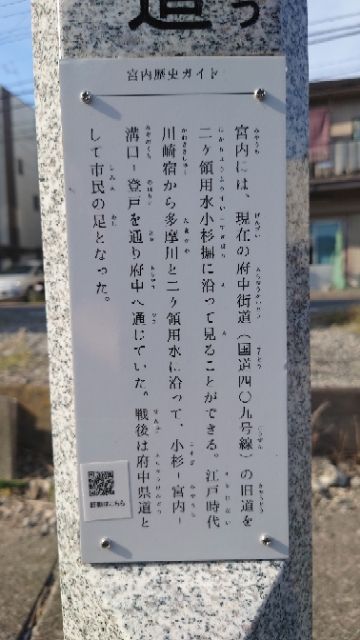 道
宮内歴史ガイド
宮内には、現在の府中街道（国道四〇九号線）の旧道を
二ヶ領用水小杉堀に沿って見ることができる。江戸時代
川崎宿から多摩川と二ヶ領用水に沿って、小杉－宮内－
溝口－登戸を通り府中へ通じていた。戦後は府中県道と
して市民の足となった。
詳細はこちら